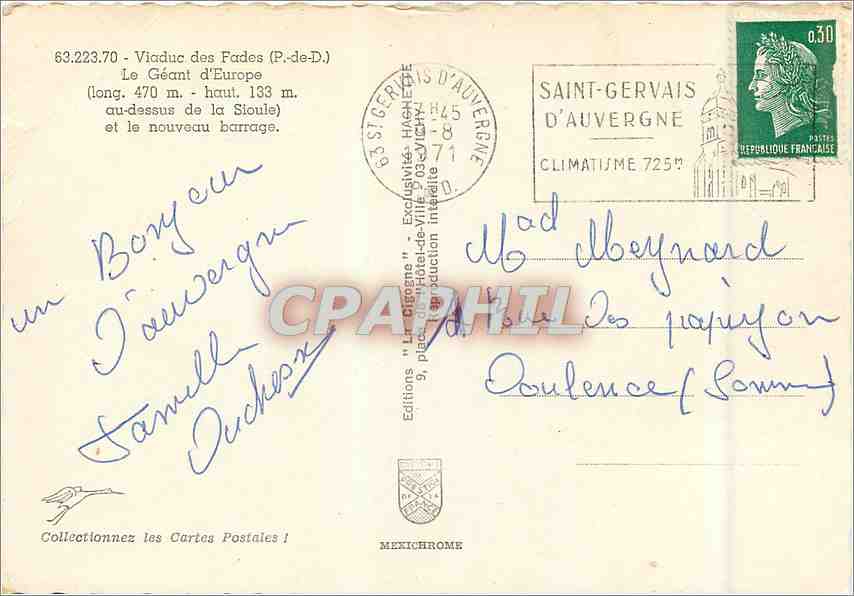 63.223.70 - Viaduc des Fades (P.-de-D.)
Le Géant d'Europe
(long. 470 m. - haut. 133 m.
au-dessus de la Sioule)
et le nouveau barrage.
un Bonjour
d'auvergne
Famille
Duchesne
Collectionnez les Cartes Postales !
Editions "La Cigogne" - Exclusivité HACHETTE
9, place de l'Hôtel-de-Ville - 03-VICHY
Reproduction interdite
MEXICHROME
63 ST GERVAIS D'AUVERGNE
H45
-8
1971
D.
SAINT-GERVAIS
D'AUVERGNE
CLIMATISME 725m
0,30
POSTES
REPUBLIQUE FRANCAISE
Mad Meynard
Rue des papiyon
Doulence (Somme)
CPAPHIL